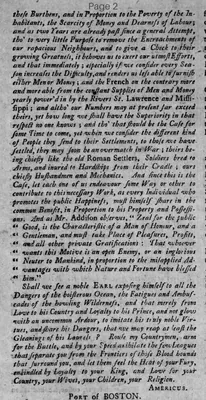 Page 2
these Burthens, and in Proportion to the Poverty of the In-
habitants, the Scarcity of Money and Dearness of Labour;
and as two Years are already past since a general Attempt,
tho' to very little Purpose to remove the Encroachments of
our rapacious Neighbours, and to give a Check to their
growing Greatness, it behoves us to exert our utmost Efforts,
and that immediately; especially if we consider every Sea-
son increases the Difficulty, and renders us less able to furnish
either Men or Money; and the French on the contrary more
and more able from the constant Supplies of Men and Money
yearly pour'd in by the Rivers St. Lawrence and Missi-
sippi; and altho' our Numbers may at present far exceed
theirs, yet how long we shall have the Superiority in that
respect no one knows; and tho' that should be the Case for
some Time to come, yet when we consider the different kind
of People they send to their Settlements, to those we have
settled, they may soon be an overmatch in War; theirs be-
ing chiefly like the old Roman Settlers, Soldiers bred to
Arms, and inured to Hardships from their Cradle; our
chiefly Husbandmen and Mechanics. And since this is the
Case, let each one of us endeavour some Way or other to
contribute to this necessary Work, as every Individual who
promotes the public Happiness, must himself share in the
common Benefit, in Proportion to his Property and Possessi-
ons. And as Mr. Addison observes, "Zeal for the public
" Good, is the Characteristic of a Man of Honor, and a
" Gentleman, and must take Place of Pleasures, Profits,
" and all other private Gratifications: That whoever
" wants this Motive is an open Enemy, or an inglorious
" Neuter to Mankind, in proportion to the misapplied Ad-
" vantages with which Nature and Fortune have blessed
" him."
Shall we see a noble EARL exposing himself to all the
Dangers of the boisterous Ocean, the Fatigues and Ambus-
cades of the howling Wilderness, and that merely from
Love to his Country and Loyalty to his Prince, and not glow
with an uncommon Ardour, to imitate his truly noble Vir-
tues, and share his Dangers, that we may reap at least the
Gleanings of his Laurels? Rouse my Countrymen, arm
for the Battle, and by your Speed annihilate the few Leagues
that separate you from the Frontiers of those Blood hounds
that surround you, and let them feel the Heat of your Fury,
enkindled by Loyalty to your King, and Love for your
Country, your Wives, your Children, your Religion.
AMERICUS.
PORT of BOSTON.